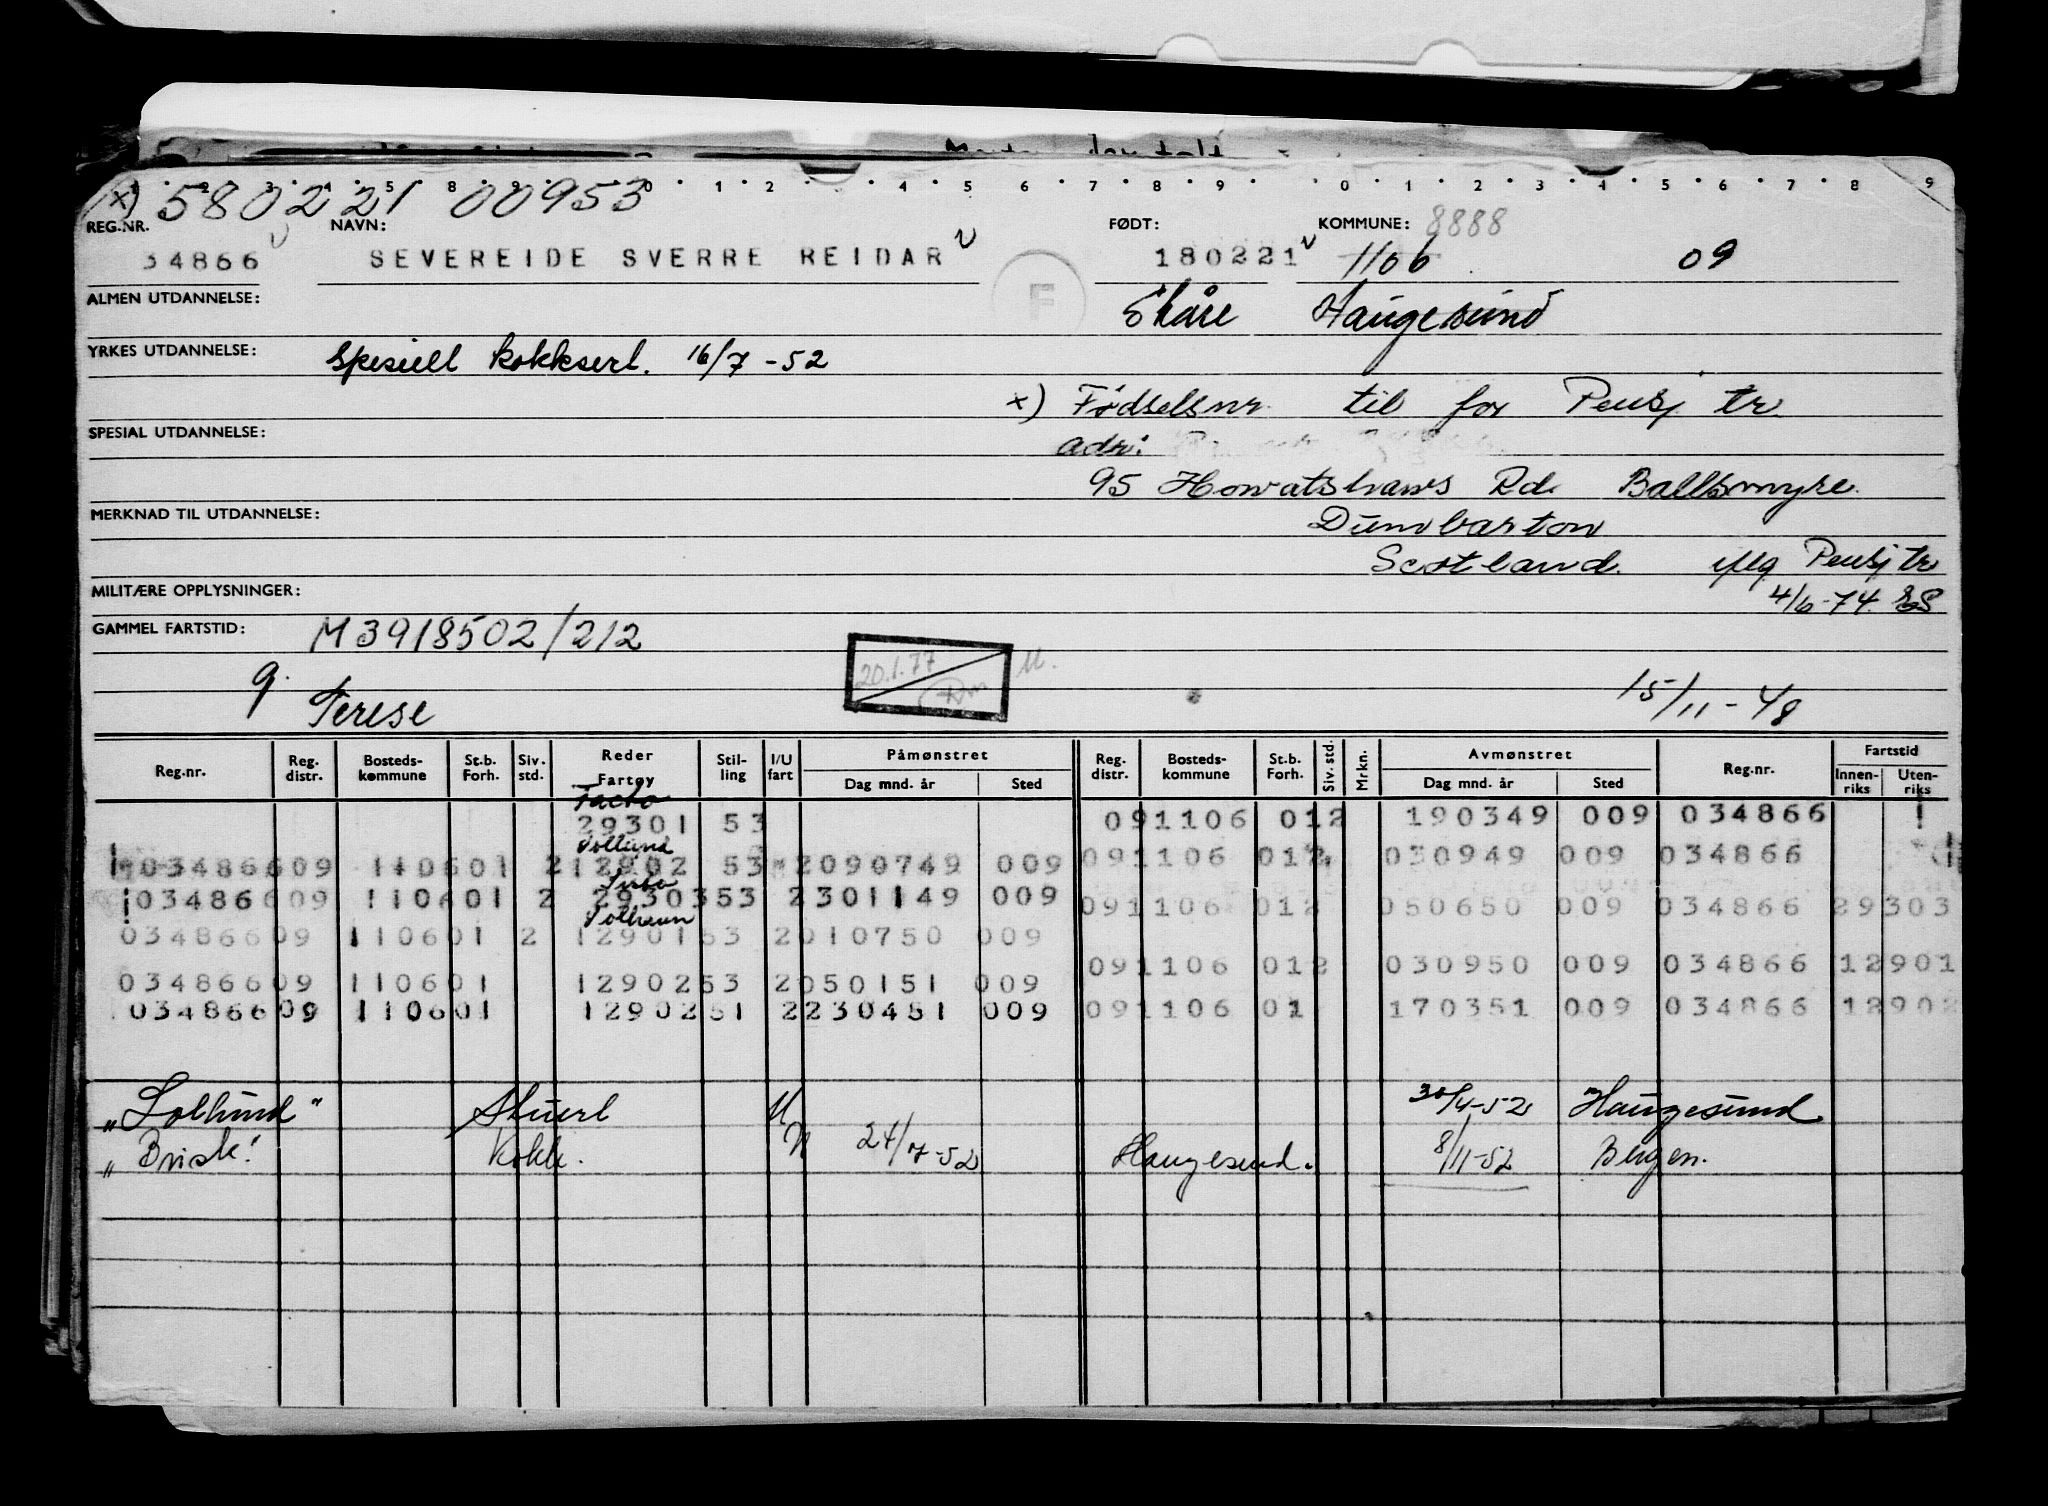 x) 580221 00953
REG.NR. NAVN: FØDT: KOMMUNE: 8888
34866 SEVEREIDE SVERRE REIDAR 180221 1106 09
F
ALMEN UTDANNELSE: Skåre Haugesund
YRKES UTDANNELSE: Spesiell kokksert. 16/7-52
x) Fødselsnr. til for Pensj tr
SPESIAL UTDANNELSE: adr:
95 Howatshaws Rd. Ballsmyre
MERKNAD TIL UTDANNELSE: Dumbarton
Scotland. iflg Pensj tr
MILITÆRE OPPLYSNINGER: 4/6-74. ES
GAMMEL FARTSTID: M3918502/212
20.1.77
g. Terese 15/11-48
Reg.nr. Reg. distr. Bosteds-kommune St.b. Forh. Siv. std. Reder Fartøy Stil-ling I/U fart Påmønstret Dag mnd. år Sted Reg. distr. Bosteds-kommune St.b. Forh. Siv. std. Mrkn. Avmønstret Dag mnd. år Sted Reg.nr. Fartstid Innen-riks Uten-riks
29301 53 091106 012 190349 009 034866
Sollund
034866 09 110601 2 12902 53 2090749 009 091106 012 030949 009 034866
034866 09 110601 2 29303 53 2301149 009 091106 012 050650 009 034866 29303
Solheim
034866 09 110601 2 12901 53 2010750 009
091106 012 030950 009 034866 12901
034866 09 110601 12902 53 2050151 009
034866 09 110601 12902 51 2230451 009 091106 01 170351 009 034866 12902
"Sollund" Stuert U 30/4-52 Haugesund
"Brisk" Kokk. N 24/7-52 Haugesund. 8/11-52 Bergen.